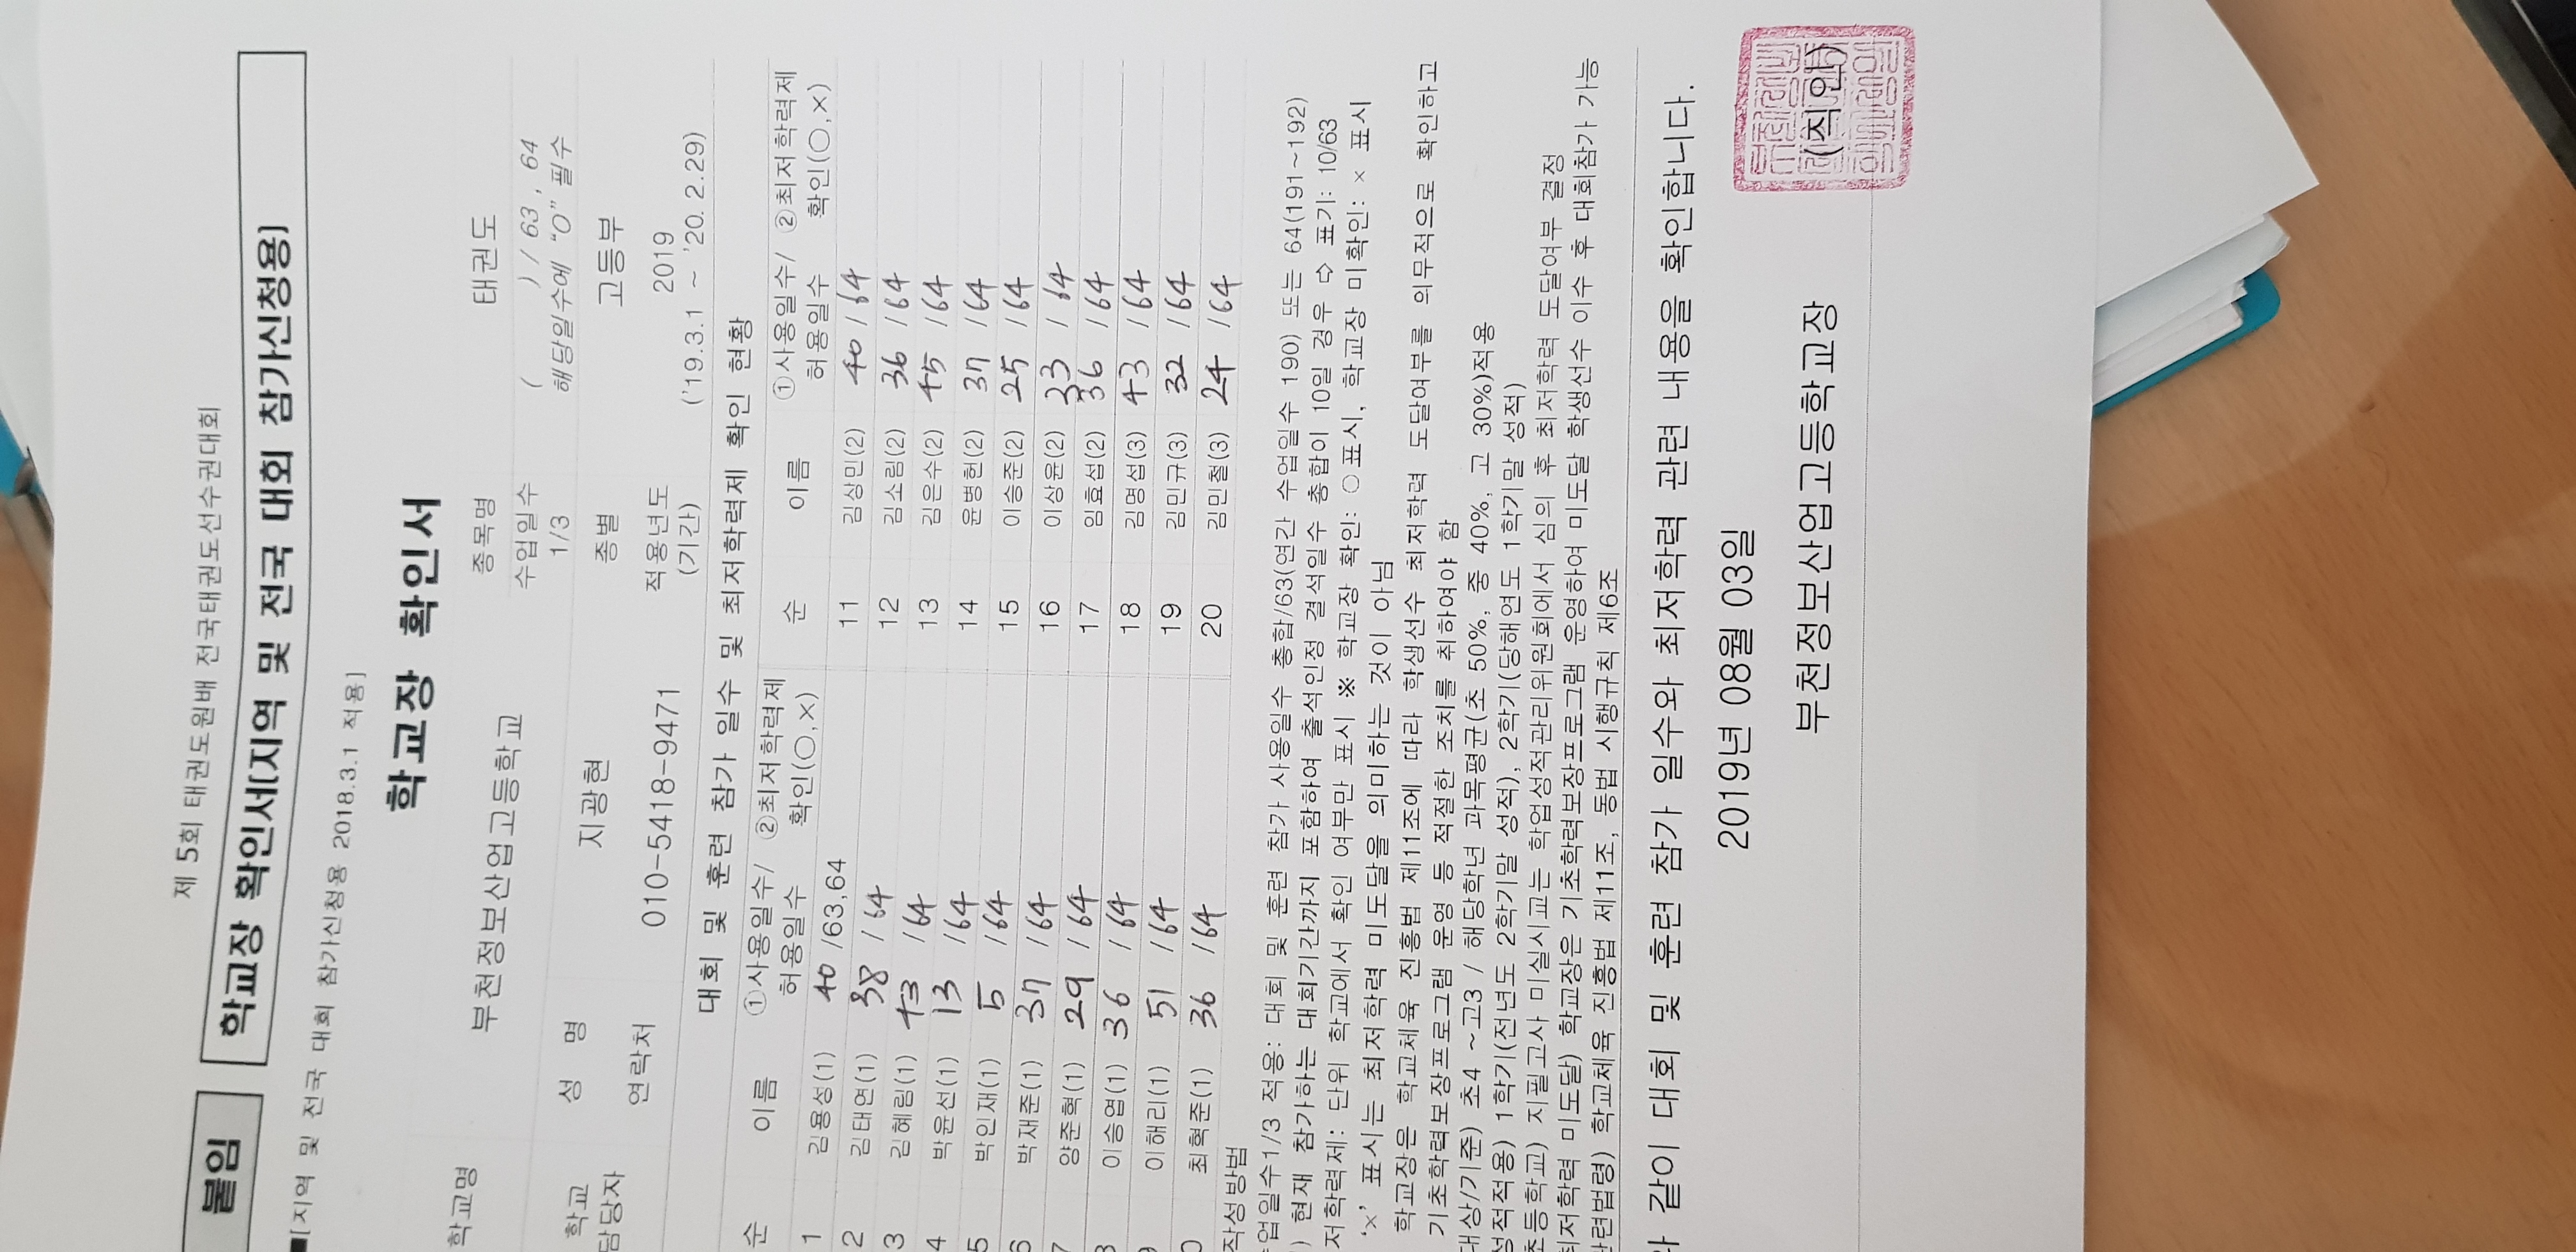 제 5회 태권도원배 전국태권도선수권대회
붙임 학교장 확인서(지역 및 전국 대회 참가신청용)
■[지역 및 전국 대회 참가신청용 2018.3.1 적용]
학교장 확인서
학교명 부천정보산업고등학교 종목명 태권도
학교 담당자 성 명 지광현 수업일수 1/3 ( ) / 63, 64
해당일수에 "O" 필수
종별 고등부
연락처 010-5418-9471 적용년도 (기간) 2019
('19.3.1 ~ '20.2.29)
대회 및 훈련 참가 일수 및 최저학력제 확인 현황
순 이름 ①사용일수/허용일수 ②최저학력제 확인(○,×) 순 이름 ①사용일수/허용일수 ②최저학력제 확인(○,×)
1 김용성(1) 40 /63,64 11 김상민(2) 40 /64
2 김태연(1) 38 /64 12 김소림(2) 36 /64
3 김혜림(1) 43 /64 13 김은수(2) 45 /64
4 박윤선(1) 13 /64 14 윤병헌(2) 37 /64
5 박인재(1) 5 /64 15 이승준(2) 25 /64
6 박재준(1) 37 /64 16 이상윤(2) 33 /64
7 양준혁(1) 29 /64 17 임효섭(2) 36 /64
이승엽(1) 36 /64 18 김명섭(3) 43 /64
이해리(1) 51 /64 19 김민규(3) 32 /64
0 최혁준(1) 36 /64 20 김민철(3) 24 /64
작성방법
업일수1/3 적용: 대회 및 훈련 참가 사용일수 총합/63(연간 수업일수 190) 또는 64(191~192)
) 현재 참가하는 대회기간까지 포함하여 출석인정 결석일수 총합이 10일 경우 ⇨ 표기: 10/63
저학력제: 단위 학교에서 확인 여부만 표시 ※ 학교장 확인: ○ 표시, 학교장 미확인: × 표시
'×' 표시는 최저학력 미도달을 의미하는 것이 아님
학교장은 학교체육 진흥법 제11조에 따라 학생선수 최저학력 도달여부를 의무적으로 확인하고
기초학력보장프로그램 운영 등 적절한 조치를 취하여야 함
대상/기준) 초4 ~고3 / 해당학년 과목평균(초 50%, 중 40%, 고 30%)적용
성적적용) 1학기(전년도 2학기말 성적), 2학기(당해연도 1학기말 성적)
초등학교) 지필고사 미실시교는 학업성적관리위원회에서 심의 후 최저학력 도달여부 결정
최저학력 미도달) 학교장은 기초학력보장프로그램 운영하여 미도달 학생선수 이수 후 대회참가 가능
관련법령) 학교체육 진흥법 제11조, 동법 시행규칙 제6조
같이 대회 및 훈련 참가 일수와 최저학력 관련 내용을 확인합니다.
2019년 08월 03일
부천정보산업고등학교장 (직인)